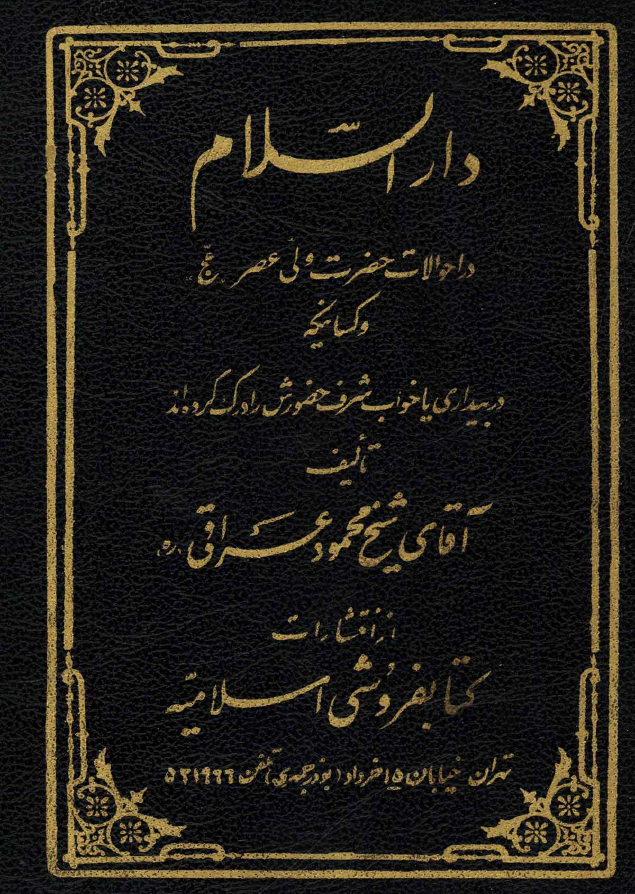 دار السّلام
در احوالات حضرت ولی عصر «عج»
و کسانیکه
در بیداری یا خواب شرف حضورش را درک کرده‌اند
تألیف
آقای شیخ محمود عراقی «ره»
از انتشارات
کتابفروشی اسلامیّه
تهران خیابان ۱۵ خرداد (بوذرجمهری) تلفن ۵۲۱۹۶۶